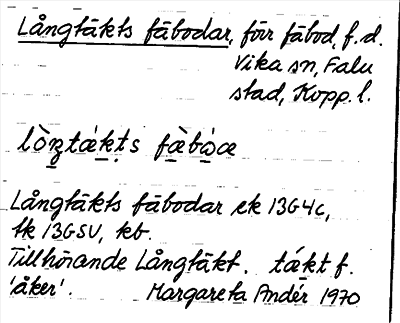 Långtäkts fäbodar, förr fäbod, f. d.
Vika sn, Falu
stad, Kopp. l.
Långtäkts fäbodar ek 13G4c,
tk 13GSV, kb.
Tillhörande Långtäkt. täkt f.
'åker'. Margareta Andér 1970